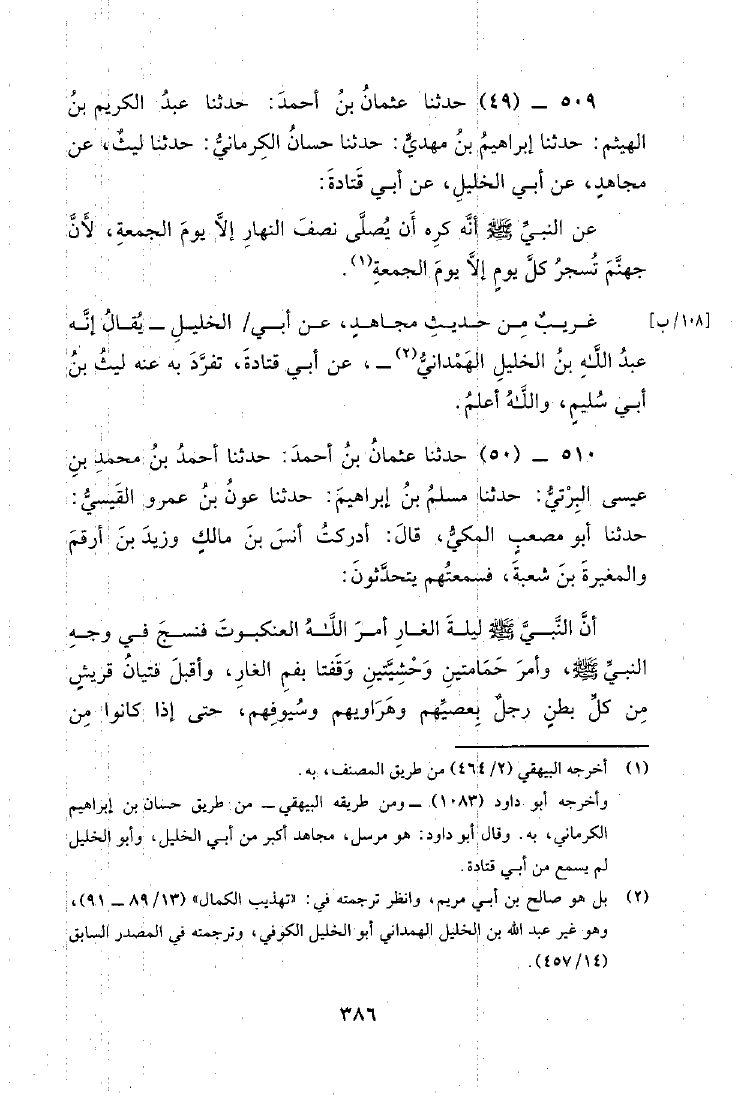 ٥٠٩ ــ (٤٩) حدثنا عثمانُ بنُ أحمدَ: حدثنا عبدُ الكريم بنُ
الهيثم: حدثنا إبراهيمُ بنُ مهديٍّ: حدثنا حسانُ الكِرمانيُّ: حدثنا ليثٌ، عن
مجاهدٍ، عن أبي الخليلِ، عن أبي قَتادةَ:
عن النبيِّ ﷺ أنَّه كره أَن يُصلَّى نصفَ النهارِ إلَّا يومَ الجمعةِ، لأنَّ
جهنَّمَ تُسجرُ كلَّ يومٍ إلَّا يومَ الجمعةِ(١).
غريبٌ مِن حديثِ مجاهدٍ، عن أبي/ الخليلِ ــ يُقالُ إنَّه [١٠٨/ب]
عبدُ اللَّهِ بنُ الخليلِ الهَمْدانيُّ(٢) ــ، عن أبي قتادةَ، تفرَّدَ به عنه ليثُ بنُ
أبي سُليمٍ، واللَّهُ أعلمُ.
٥١٠ ــ (٥٠) حدثنا عثمانُ بنُ أحمدَ: حدثنا أحمدُ بنُ محمدِ بنِ
عيسى البِرْتيُّ: حدثنا مسلمُ بنُ إبراهيمَ: حدثنا عونُ بنُ عمرو القَيسيُّ:
حدثنا أبو مصعبٍ المكيُّ، قالَ: أدركتُ أنسَ بنَ مالكٍ وزيدَ بنَ أرقمَ
والمغيرةَ بنَ شعبةَ، فسمعتُهم يتحدَّثونَ:
أنَّ النَّبيَّ ﷺ ليلةَ الغارِ أمرَ اللَّهُ العنكبوتَ فنسجَ في وجهِ
النبيِّ ﷺ، وأمرَ حَمَامتينِ وَحْشِيَّتينِ وَقَفتا بفمِ الغارِ، وأقبلَ فتيانُ قريشٍ
مِن كلِّ بطنٍ رجلٌ بِعصيِّهم وهَرَاويهم وسُيوفِهم، حتى إذا كانوا مِن
(١) أخرجه البيهقي (٤٦٤/٢) من طريق المصنف، به.
وأخرجه أبو داود (١٠٨٣) ــ ومن طريقه البيهقي ــ من طريق حسان بن إبراهيم
الكرماني، به. وقال أبو داود: هو مرسل، مجاهد أكبر من أبي الخليل، وأبو الخليل
لم يسمع من أبي قتادة.
(٢) بل هو صالح بن أبي مريم، وانظر ترجمته في: «تهذيب الكمال» (٨٩/١٣ ــ ٩١)،
وهو غير عبد الله بن الخليل الهمداني أبو الخليل الكوفي، وترجمته في المصدر السابق
(٤٥٧/١٤).
٣٨٦